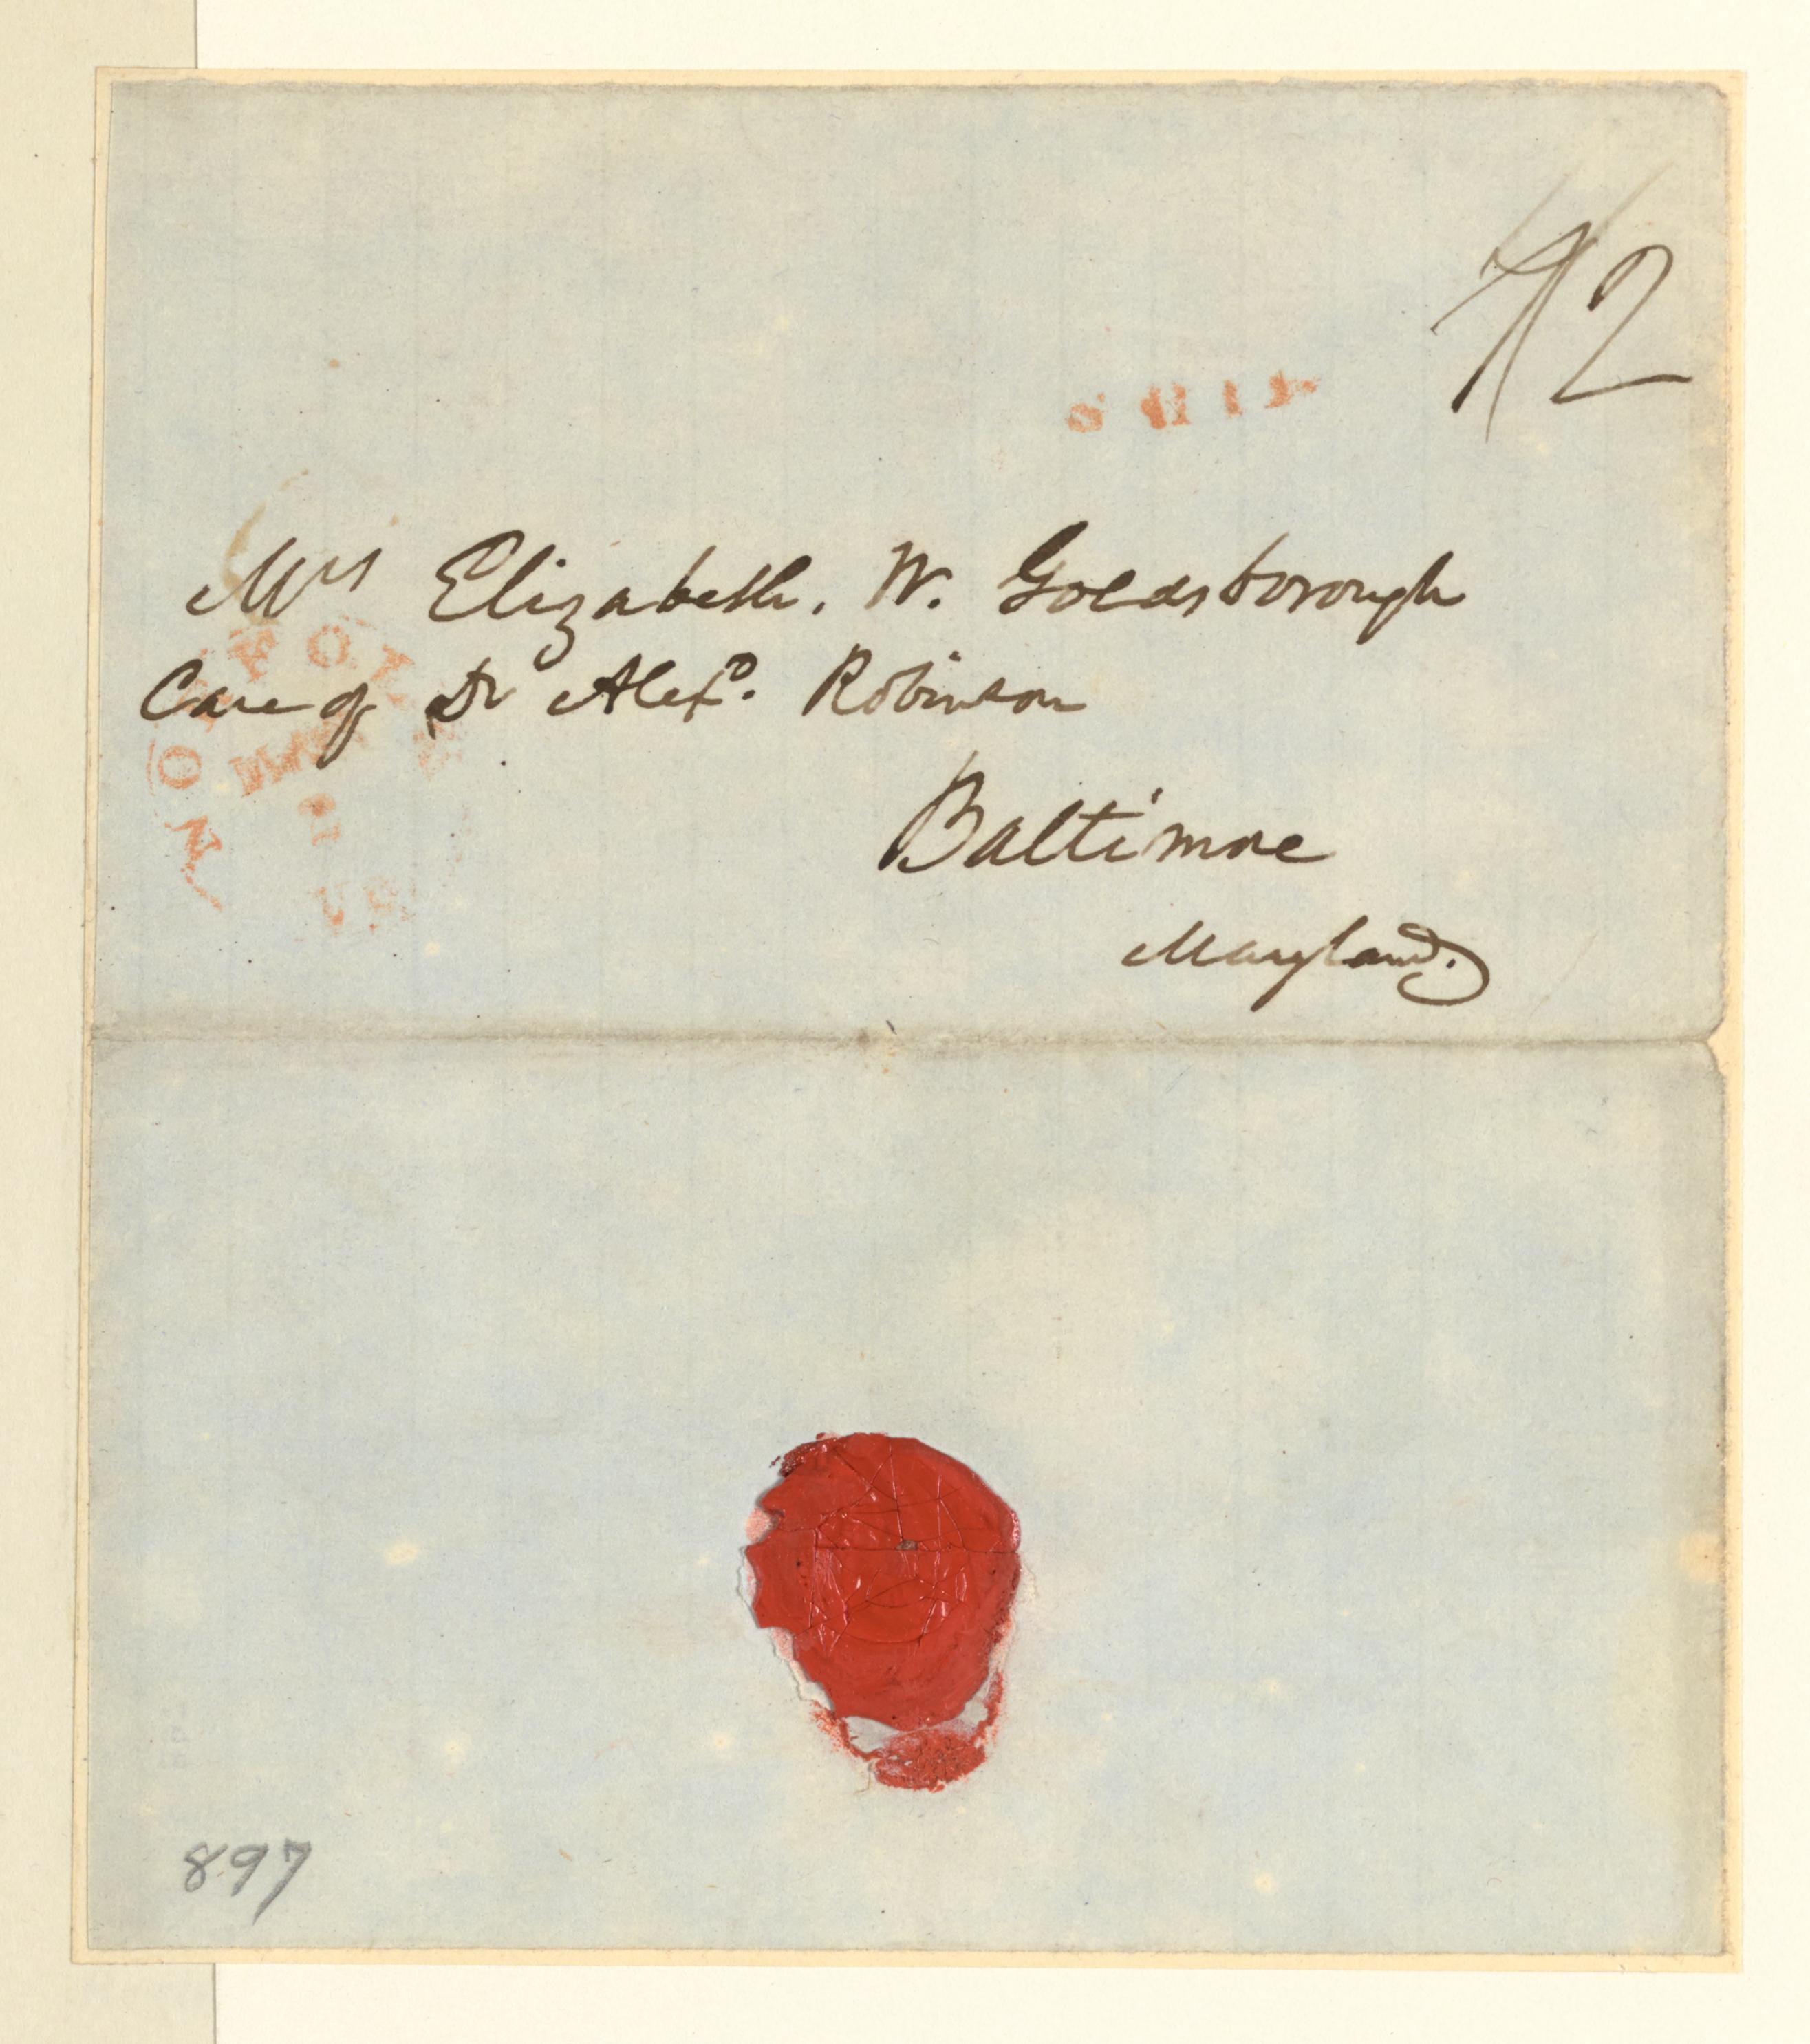 12
SHIP
Mrs Elizabeth. W. Goldsborough
Care of Dr Alexr. Robinson
Baltimore
Maryland.
NORFOLK
MAR
897